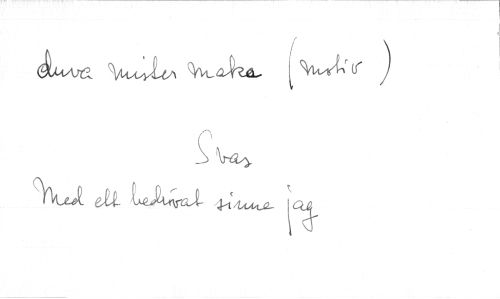 duva mister make (motiv)
Svas
Med ett bedrövat sinne jag